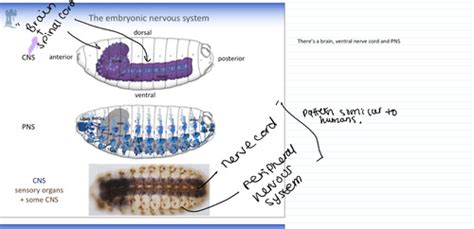 The embryonic nervous system
" Brain
+
spinal cord
dorsal
CNS
anterior
posterior
ventral
There's a brain, ventral nerve cord and PNS
PNS
pattern similar to
humans.
nerve cord
peripheral
nervous
system
CNS
sensory organs
+ some CNS